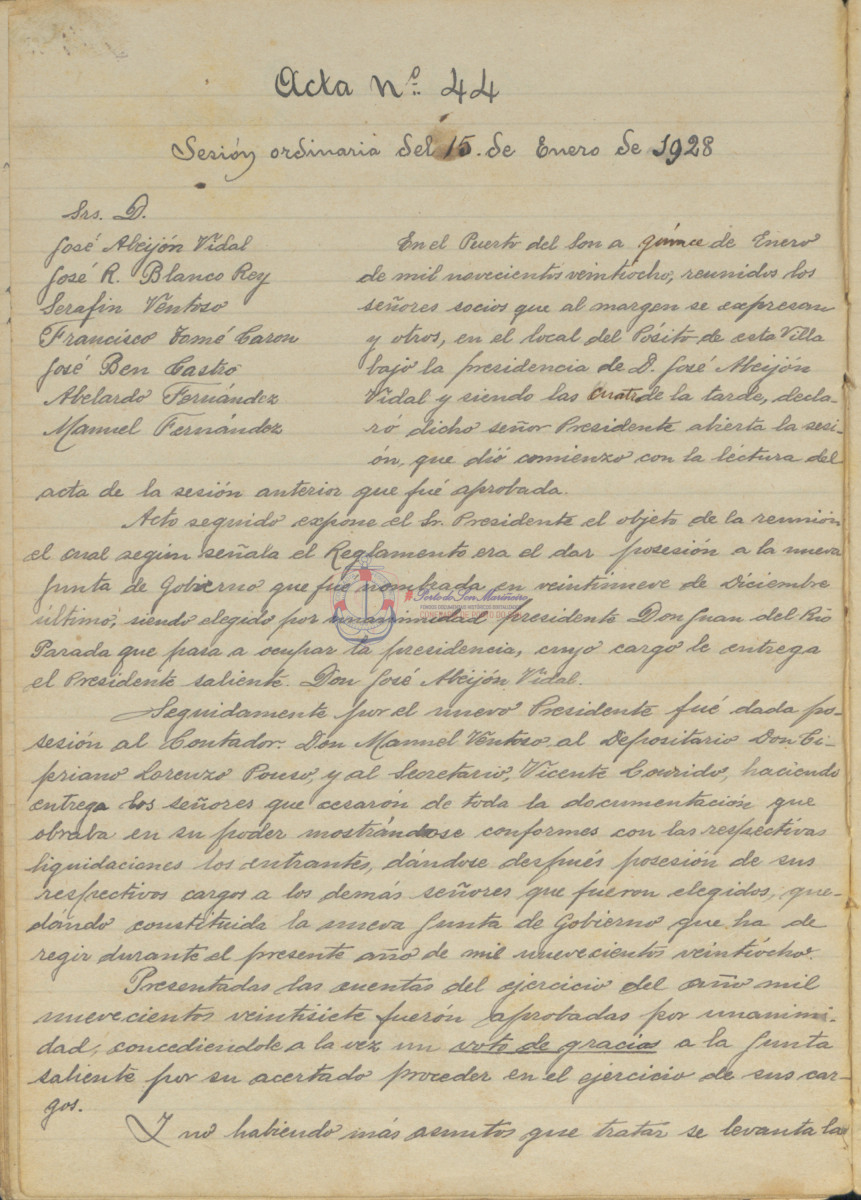 Acta Nº 44
Sesión ordinaria del 15 de Enero de 1928
Srs. D.
José Abeijón Vidal
José R. Blanco Rey
Serafin Ventoso
Francisco Tomé Caron
José Ben Castro
Abelardo Fernández
Manuel Fernández
En el Puerto del Son a quince de Enero
de mil novecientos veintiocho, reunidos los
señores socios que al margen se expresan
y otros, en el local del Pósito de esta Villa
bajo la presidencia de D. José Abeijón
Vidal y siendo las cuatro de la tarde, decla-
ró dicho señor Presidente abierta la sesi-
ón, que dió comienzo con la lectura del
acta de la sesión anterior que fué aprobada.
Acto seguido expone el Sr. Presidente el objeto de la reunión
el cual según señala el Reglamento era el dar posesión a la nueva
Junta de Gobierno que fué nombrada en veintinueve de Diciembre
último, siendo elegido por unanimidad presidente Don Juan del Rio
Parada que pasa a ocupar la presidencia, cuyo cargo le entrega
el Presidente saliente. Don José Abeijón Vidal.
Seguidamente por el nuevo Presidente fué dada po-
sesión al Contador. Don Manuel Ventoso al Depositario Don Ci-
priano Lorenzo Pouso, y al Secretario, Vicente Lourido, haciendo
entrega los señores que cesarón de toda la documentación que
obraba en su poder mostrándose conformes con las respectivas
liquidaciones los entrantes, dándose después posesión de sus
respectivos cargos a los demás señores que fueron elegidos, que-
dándo constituida la nueva Junta de Gobierno que ha de
regir durante el presente año de mil nuevecientos veintiocho.
Presentadas las cuentas del ejercicio del año mil
nuevecientos veintisiete fuerón aprobadas por unanimi-
dad, concediendole a la vez un voto de gracias a la Junta
saliente por su acertado proceder en el ejercicio de sus car-
gos.
Y no habiendo más asuntos que tratar se levanta la
Porto do Son Mariñeiro